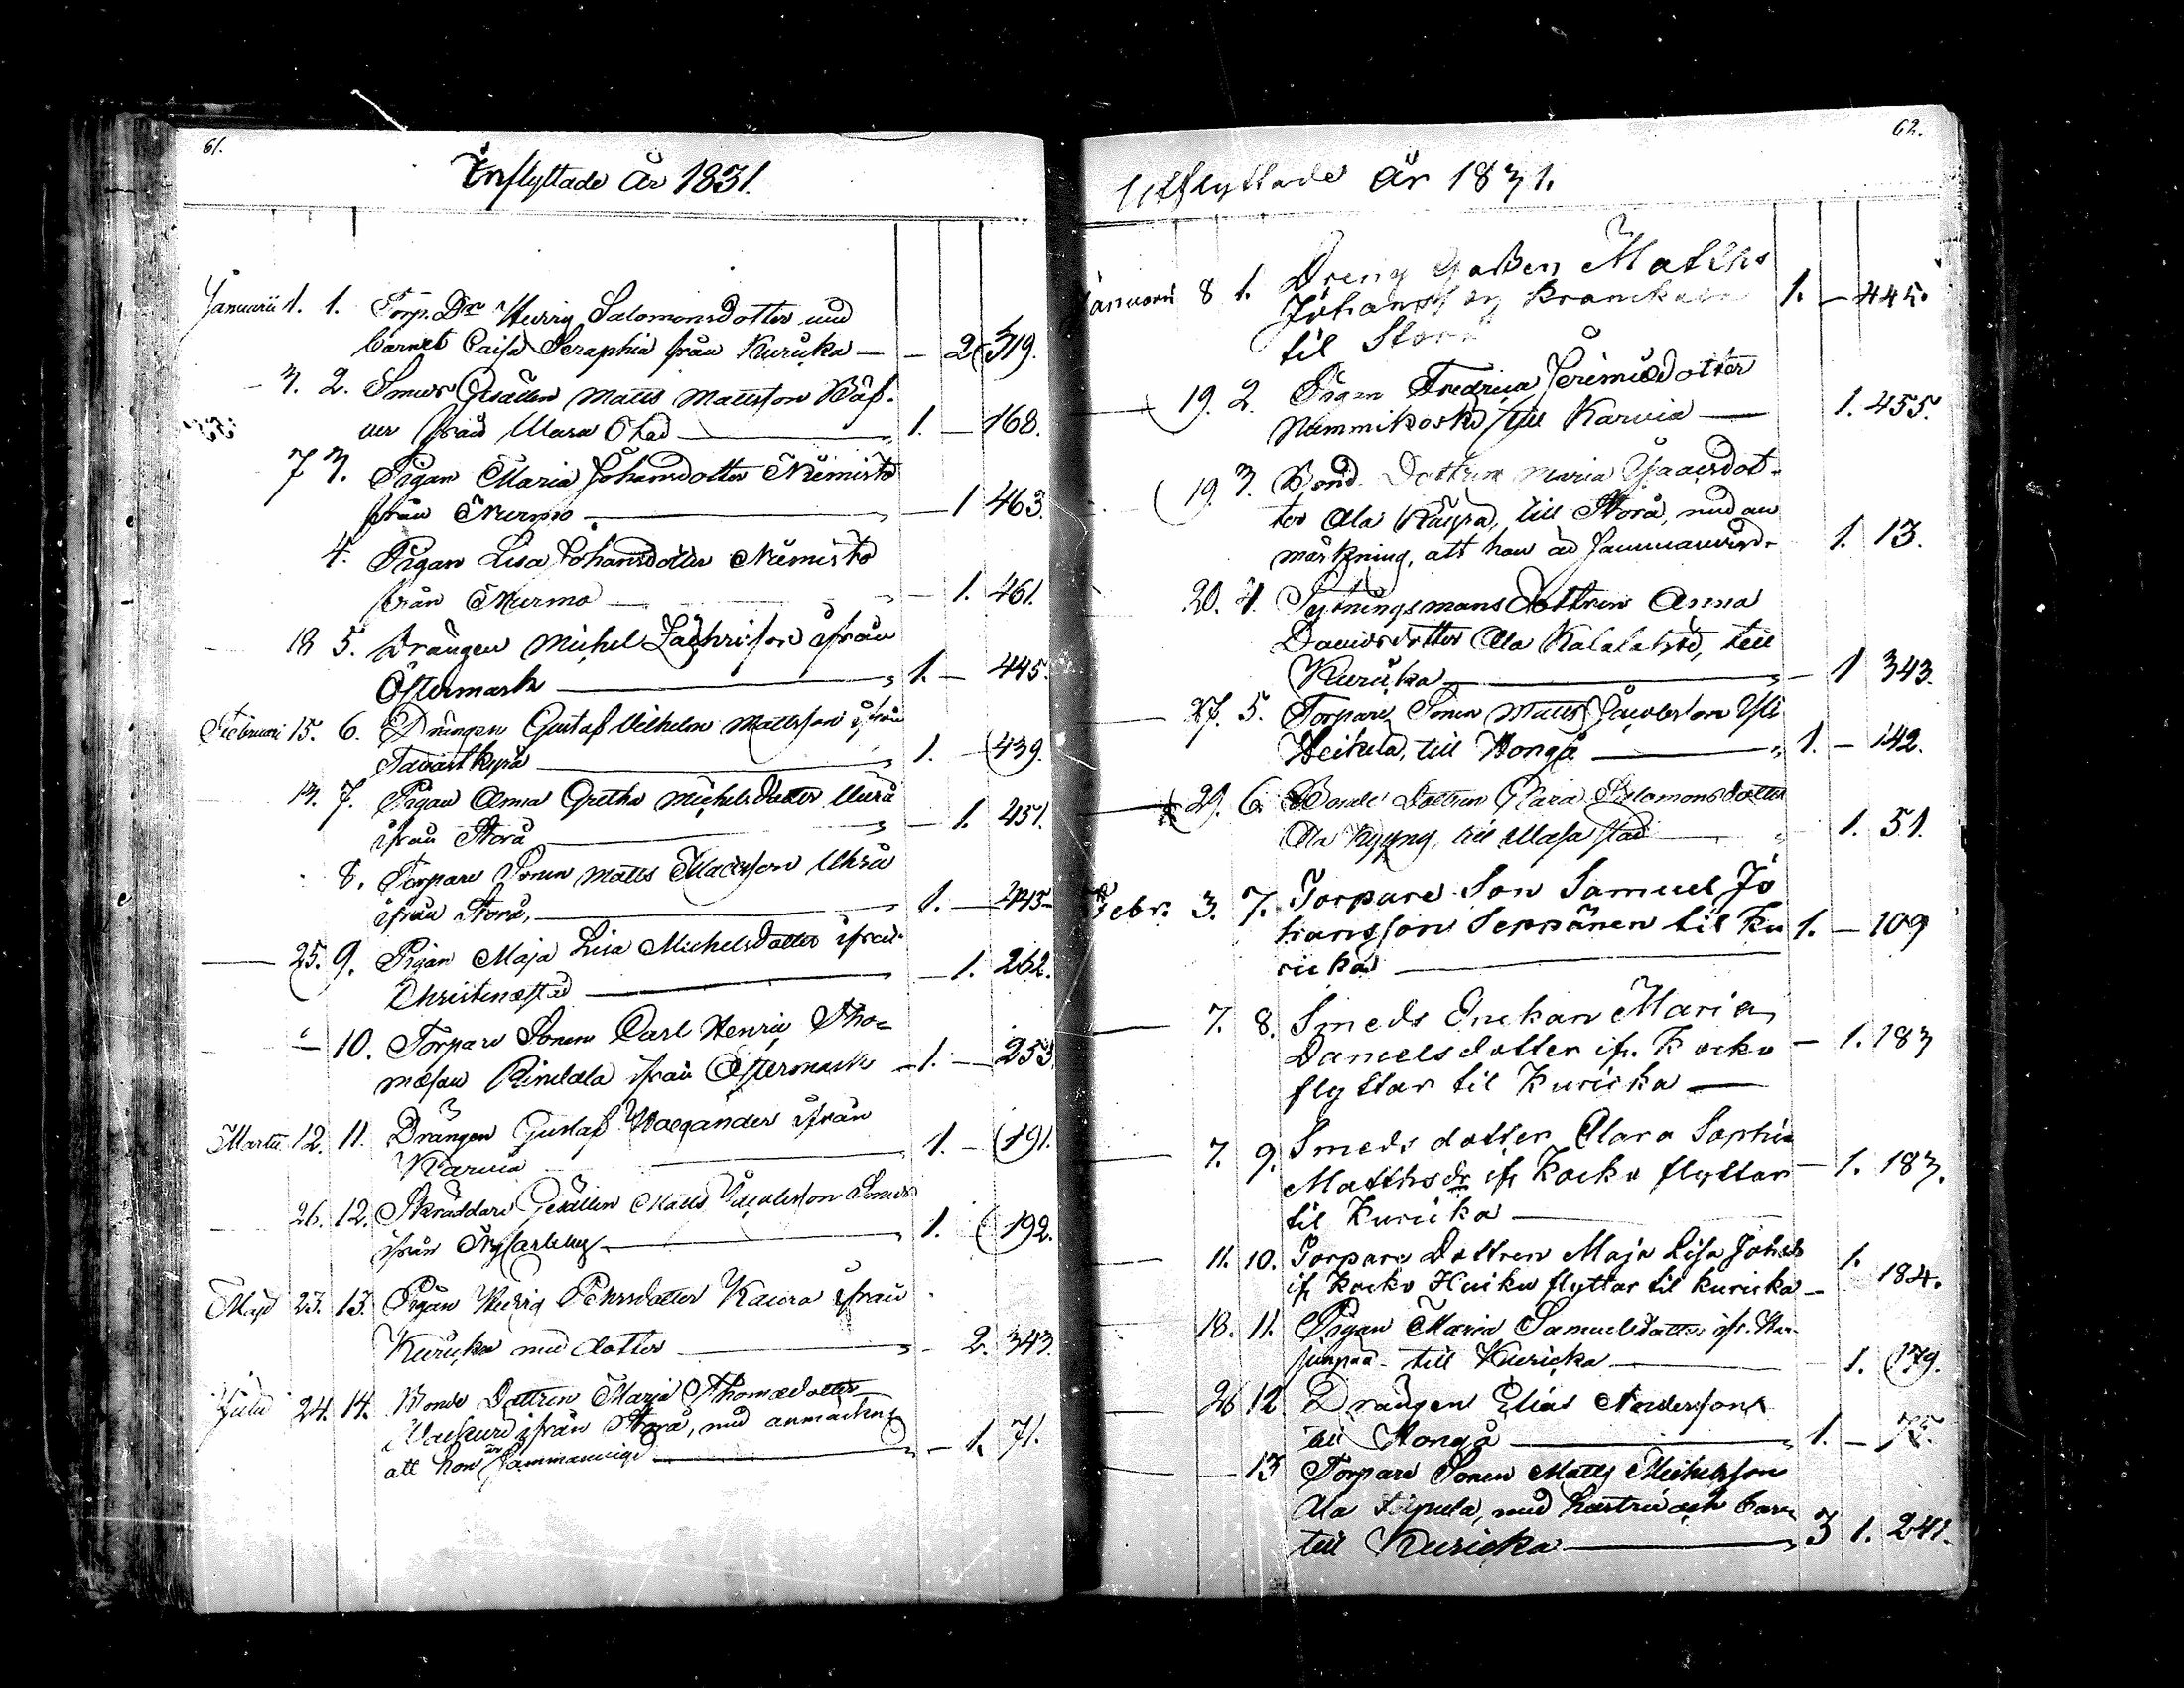 61.
Inflyttade År 1831.
Januarii 1. 1. Torp. Dr Hedvig Salomonsdotter med
barnet Caisa Seraphia från Kuricka — — 2 319.
— 3. 2. Smeds Gesällen Matts Mattsson
från Wasa Stad — 1. — 168.
7 3. Pigan Maria Johansdotter Niemistö
från Nurmo — — 1 463.
4. Pigan Lisa Johansdotter Niemistö
från Nurmo — — 1. 461.
18 5. Drängen Michel Zachrisson ifrån
Östermark — 1. — 445.
Februari 15. 6. Drängen Gustaf Vilhelm Mattsson ifrån
Tavastkyrö — 1. — 439.
13. 7. Pigan Anna Gretha Michelsdotter
ifrån Storå — — 1. 451.
8. Torpare Sonen Matts
ifrån Storå, — 1. — 445
— 25. 9. Pigan Maja Lisa Michelsdotter ifrån
Christinæstad — — 1. 262.
— 10. Torpare Sonen Carl Henric Tho-
mæson Rindala ifrån Östermark — 1. — 253.
Martii 12. 11. Drängen Gustaf Waegander ifrån
Karvia — 1. — 191.
26. 12. Skräddare Gesällen Matts Jacobsson
ifrån Nykarleby — 1. 192.
Maji 23. 13. Pigan Hedvig Pehrsdotter Kaura ifrån
Kuricka med dotter — — 2. 343.
Julii 24. 14. Bonde Dottren Maria Thomædotter
ifrån Storå, med anmärkn:
att hon är sammanvigd — — 1. 71.
62.
Utflyttade År 1831.
Januarii 8 1. Dreng Gossen Matths
Johans
til Storå 1. — 445.
— 19. 2. Pigan Fredrica Jeremiædotter
Nummikoski till Karvia — 1. 455.
19. 3. Bond Dottren Maria
ter Ala till Storå, med an
märkning, att hon är 1. 13.
20. 4. Sytningsmans dottren Anna
Davidsdotter Ala Kalalahti, till
Kuricka — — 1 343.
— 27. 5. Torpare Sonen Matts Jacobsson Yli
Heikkilä, till Hongå — 1. — 142.
— 29. 6. Bonde dottren Clara Salomonsdotter
Ala till Wasa stad — 1. 51.
Febr. 3. 7. Torpare Son Samuel Jo
hansson Seppänen til Ku 1. — 109
ricka —
— 7. 8. Smeds Enckan Maria
Danielsdotter if. Kocko — 1. 183
flyttar til Kuricka —
— 7. 9. Smeds dotter Clara Sophia
Matthsdr if Kocko flyttar — 1. 183.
til Kuricka —
— 11. 10. Torpare Dottren Maja Lisa Johsdr 1.
if Kocko Huiku flyttar til Kuricka — 184.
18. 11. Pigan Maria Samuelsdotter if.
till Kuricka — 1. 179.
— 26 12 Drängen Elias Andersson
till Hongå — 1. — 75.
— 13 Torpare Sonen Matts Michelsson
Ala med hustru och barn
till Kuricka — 3 1. 241.